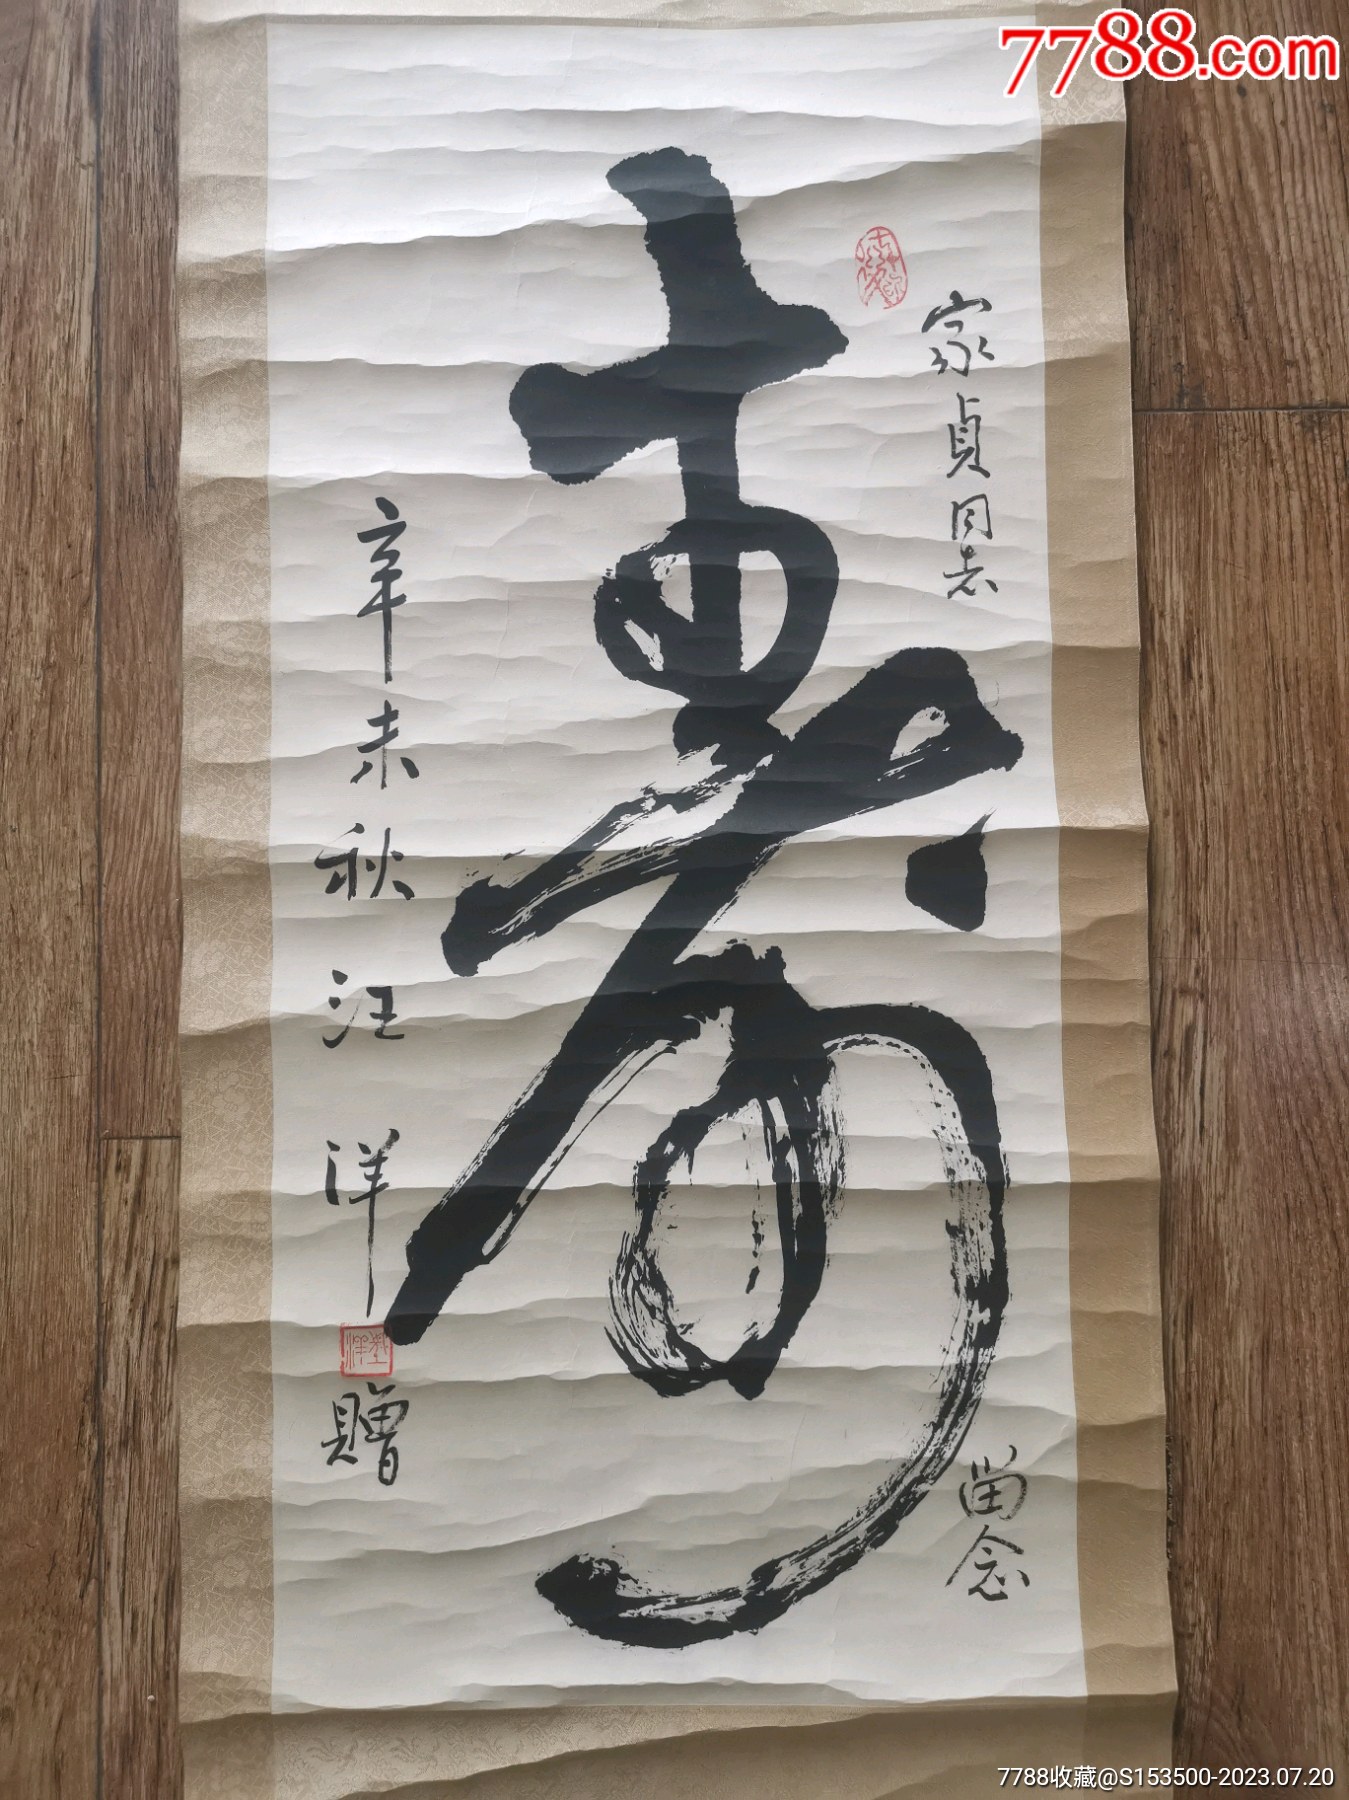 7788.com
家貞同志
留念
壽
辛未秋汪洋
贈
7788收藏@S153500-2023.07.20